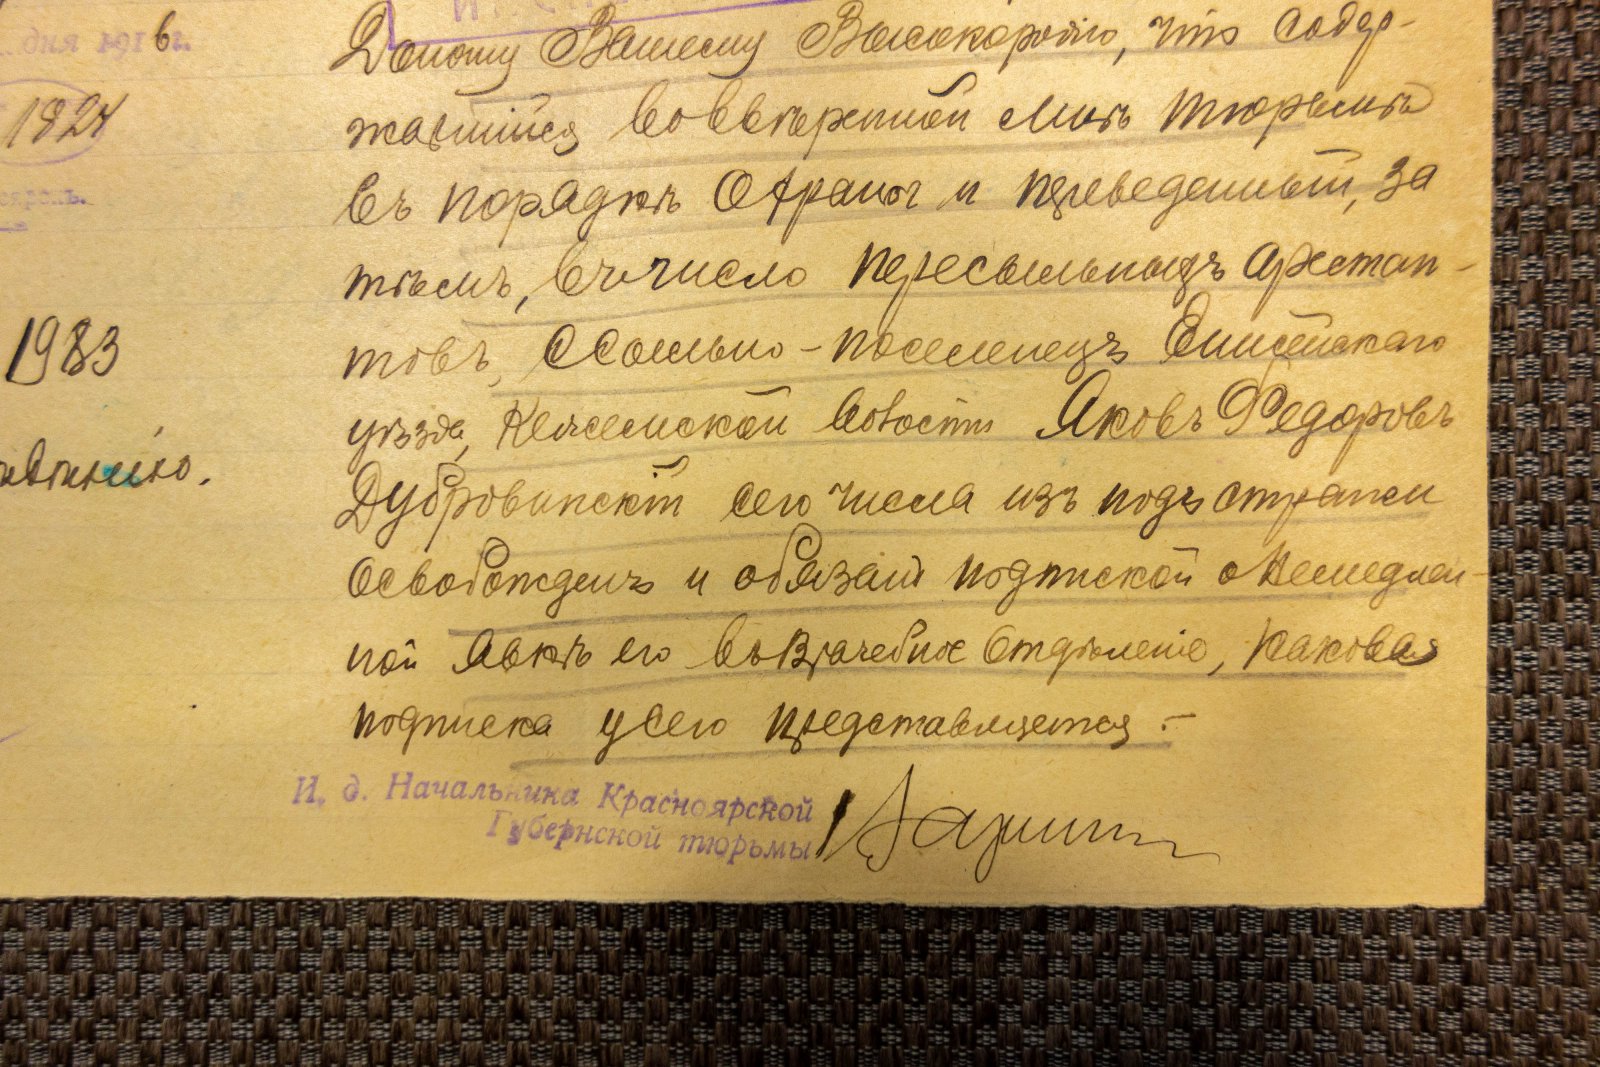 дня 1916 г.
Доношу Вашему Высокородію, что содер-
1824
жавшійся во ввѣренной мнѣ тюрьмѣ
въ порядкѣ Охраны и переведенный, за
тѣмъ, въ число пересыльныхъ арестан-
1983
товъ, ссыльно-поселенецъ Енисейскаго
уѣзда, Кежемской волости Яковъ Федоровъ
Дубровинскій сего числа изъ подъ стражи
освобожденъ и обязанъ подпиской о немедлен-
ной явкѣ его въ Врачебное Отдѣленіе, каковая
подписка у сего представляется.-
И. д. Начальника Красноярской
Губернской тюрьмы